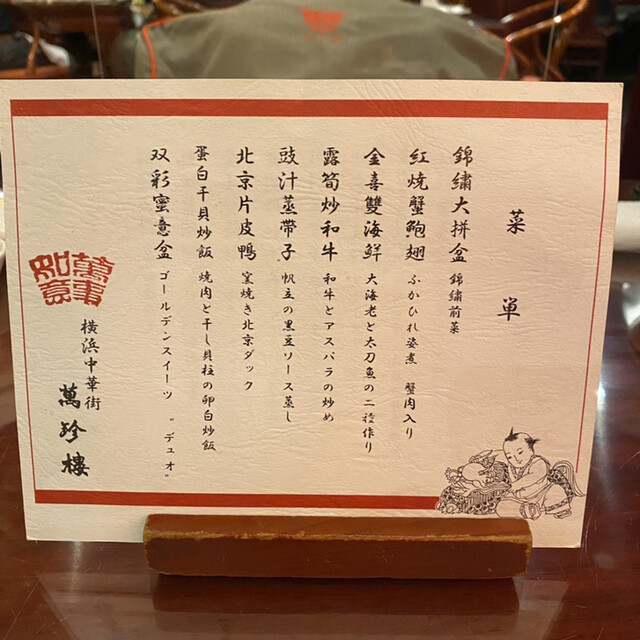 菜単
錦繡大拼盆 錦繡前菜
紅焼蟹鮑翅 ふかひれ姿煮 蟹肉入り
金喜雙海鮮 大海老と太刀魚の二種作り
露筍炒和牛 和牛とアスパラの炒め
豉汁蒸帯子 帆立の黒豆ソース蒸し
北京片皮鴨 窯焼き北京ダック
蛋白干貝炒飯 焼肉と干し貝柱の卵白炒飯
双彩蜜意盆 ゴールデンスイーツ "デュオ"
萬事如意
横浜中華街
萬珍樓